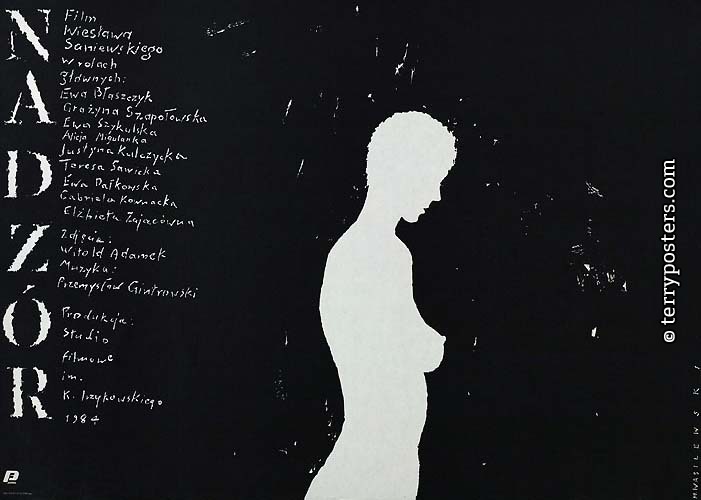 NADZÓR
Film
Wiesława
Saniewskiego
w rolach
głównych:
Ewa Błaszczyk
Grażyna Szapołowska
Ewa Szykulska
Alicja Migulanka
Justyna Kulczycka
Teresa Sawicka
Ewa Dałkowska
Gabriela Kownacka
Elżbieta Zającówna
Zdjęcia:
Witold Adamek
Muzyka:
Przemysław Gintrowski
Produkcja:
Studio
filmowe
im.
K. Irzykowskiego
1984
© terryposters.com
M. WASILEWSKI